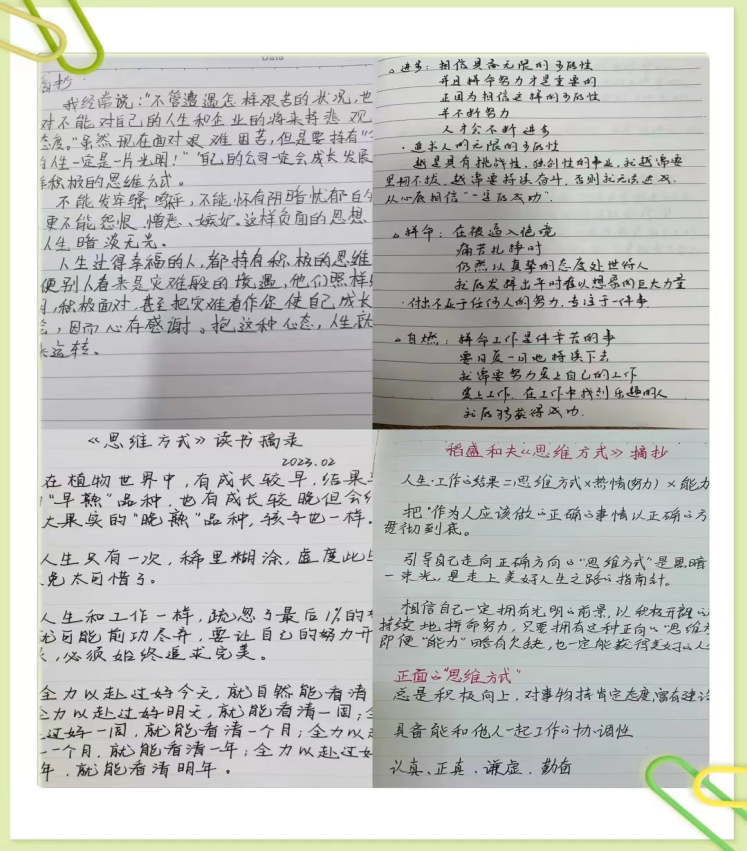 Data
摘抄
我经常说:"不管遭遇怎样艰苦的状况,也
对不能对自己的人生和企业的将来持悲观
态度。"虽然现在面对艰难困苦,但是要持有"
人生一定是一片光明!""自己的公司一定会成长发展
积极的思维方式。
不能发牢骚
不能怀有阴暗忧郁
更不能怨恨、憎恶、嫉妒。这样负面的思想、
人生暗淡无光。
人生过得幸福的人,都持有积极的思维
便别人看来是灾难般的境遇,他们照样
积极面对,甚至把灾难看作促使自己成长
会,因而心存感谢。抱这种心态,人生就
运转。
进步:相信具备无限的可能性
并且拼命努力才是重要的
正因为相信这样的可能性
并不断努力
人才会不断进步
·追求人的无限的可能性
越是具有挑战性、独创性的事业,就越需要
坚韧不拔,越需要持续奋斗,否则就无法达成.
从心底相信"一定能成功".
拼命:在被逼入绝境
痛苦挣扎时
仍然以真挚的态度处世待人
就能发挥出平时难以想象的巨大力量
·付出不亚于任何人的努力,专注于一件事.
自燃:拼命工作是件辛苦的事
要日复一日地持续下去
就需要努力爱上自己的工作
爱上工作,在工作中找到乐趣的人
就能够获得成功.
《思维方式》读书摘录
2023.02
在植物世界中,有成长较早,结果
"早熟"品种,也有成长较晚但会
大果实的"晚熟"品种,孩子也一样。
人生只有一次,稀里糊涂,虚度此
免太可惜了。
人生和工作一样,疏忽了最后1%的
就可能前功尽弃,要让自己的努力开
,必须始终追求完美。
全力以赴过好今天,就自然能看清
全力以赴过好明天,就能看清一周;全
过好一周,就能看清一个月;全力以
一个月,就能看清一年;全力以赴过
年,就能看清明年。
稻盛和夫《思维方式》摘抄
人生·工作の结果=思维方式×热情(努力)×能力
把"作为人应该做の正确の事情以正确の方
贯彻到底。
引导自己走向正确方向の"思维方式"是黑暗
一束光,是走上美好人生之路の指南针。
相信自己一定拥有光明の前景,以积极开朗の
持续地拼命努力,只要拥有这种正向の"思维方
即使"能力"略有欠缺,也一定能获得美好の人
正面の"思维方式"
总是积极向上,对事物持肯定态度,富有建设
具备能和他人一起工作の协调性
认真、正直、谦虚、勤奋